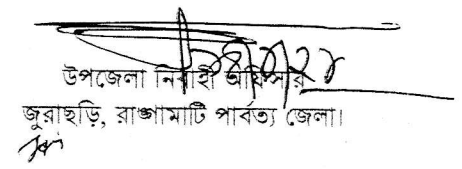 উপজেলা নির্বাহী অফিসার
জুরাছড়ি, রাঙ্গামাটি পার্বত্য জেলা।